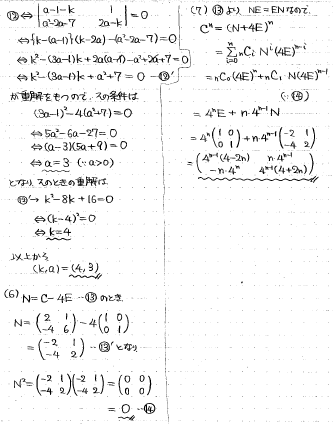 ⑫⇔ |a-1-k 1
a²-2a-7 2a-k| = 0
⇔{k-(a-1)}(k-2a)-(a²-2a-7)=0
⇔ k²-(3a-1)k+2a(a-1)-a²+2a+7=0
⇔ k²-(3a-1)k+a²+7=0 …⑫'
が重解をもつので、その条件は
(3a-1)²-4(a²+7)=0
⇔ 5a²-6a-27=0
⇔ (a-3)(5a+9)=0
⇔ a=3 (∵a>0)
となり、そのときの重解は
⑫'→ k²-8k+16=0
⇔(k-4)²=0
⇔ k=4
以上から
(k,a)=(4,3)
(6) N=C-4E …⑬のとき
N=(2 1
-4 6)-4(1 0
0 1)
=(-2 1
-4 2) …⑬'となり
N²=(-2 1
-4 2)(-2 1
-4 2)=(0 0
0 0)
=O …⑭
(7) ⑬より、NE=ENなので、
Cⁿ=(N+4E)ⁿ
=Σⁿᵢ₌₀ ₙCᵢ Nⁱ(4E)ⁿ⁻ⁱ
=ₙC₀(4E)ⁿ+ₙC₁ N(4E)ⁿ⁻¹
(∵⑭)
=4ⁿE+n·4ⁿ⁻¹N
=4ⁿ(1 0
0 1)+n·4ⁿ⁻¹(-2 1
-4 2)
=(4ⁿ⁻¹(4-2n) n·4ⁿ⁻¹
-n·4ⁿ 4ⁿ⁻¹(4+2n))